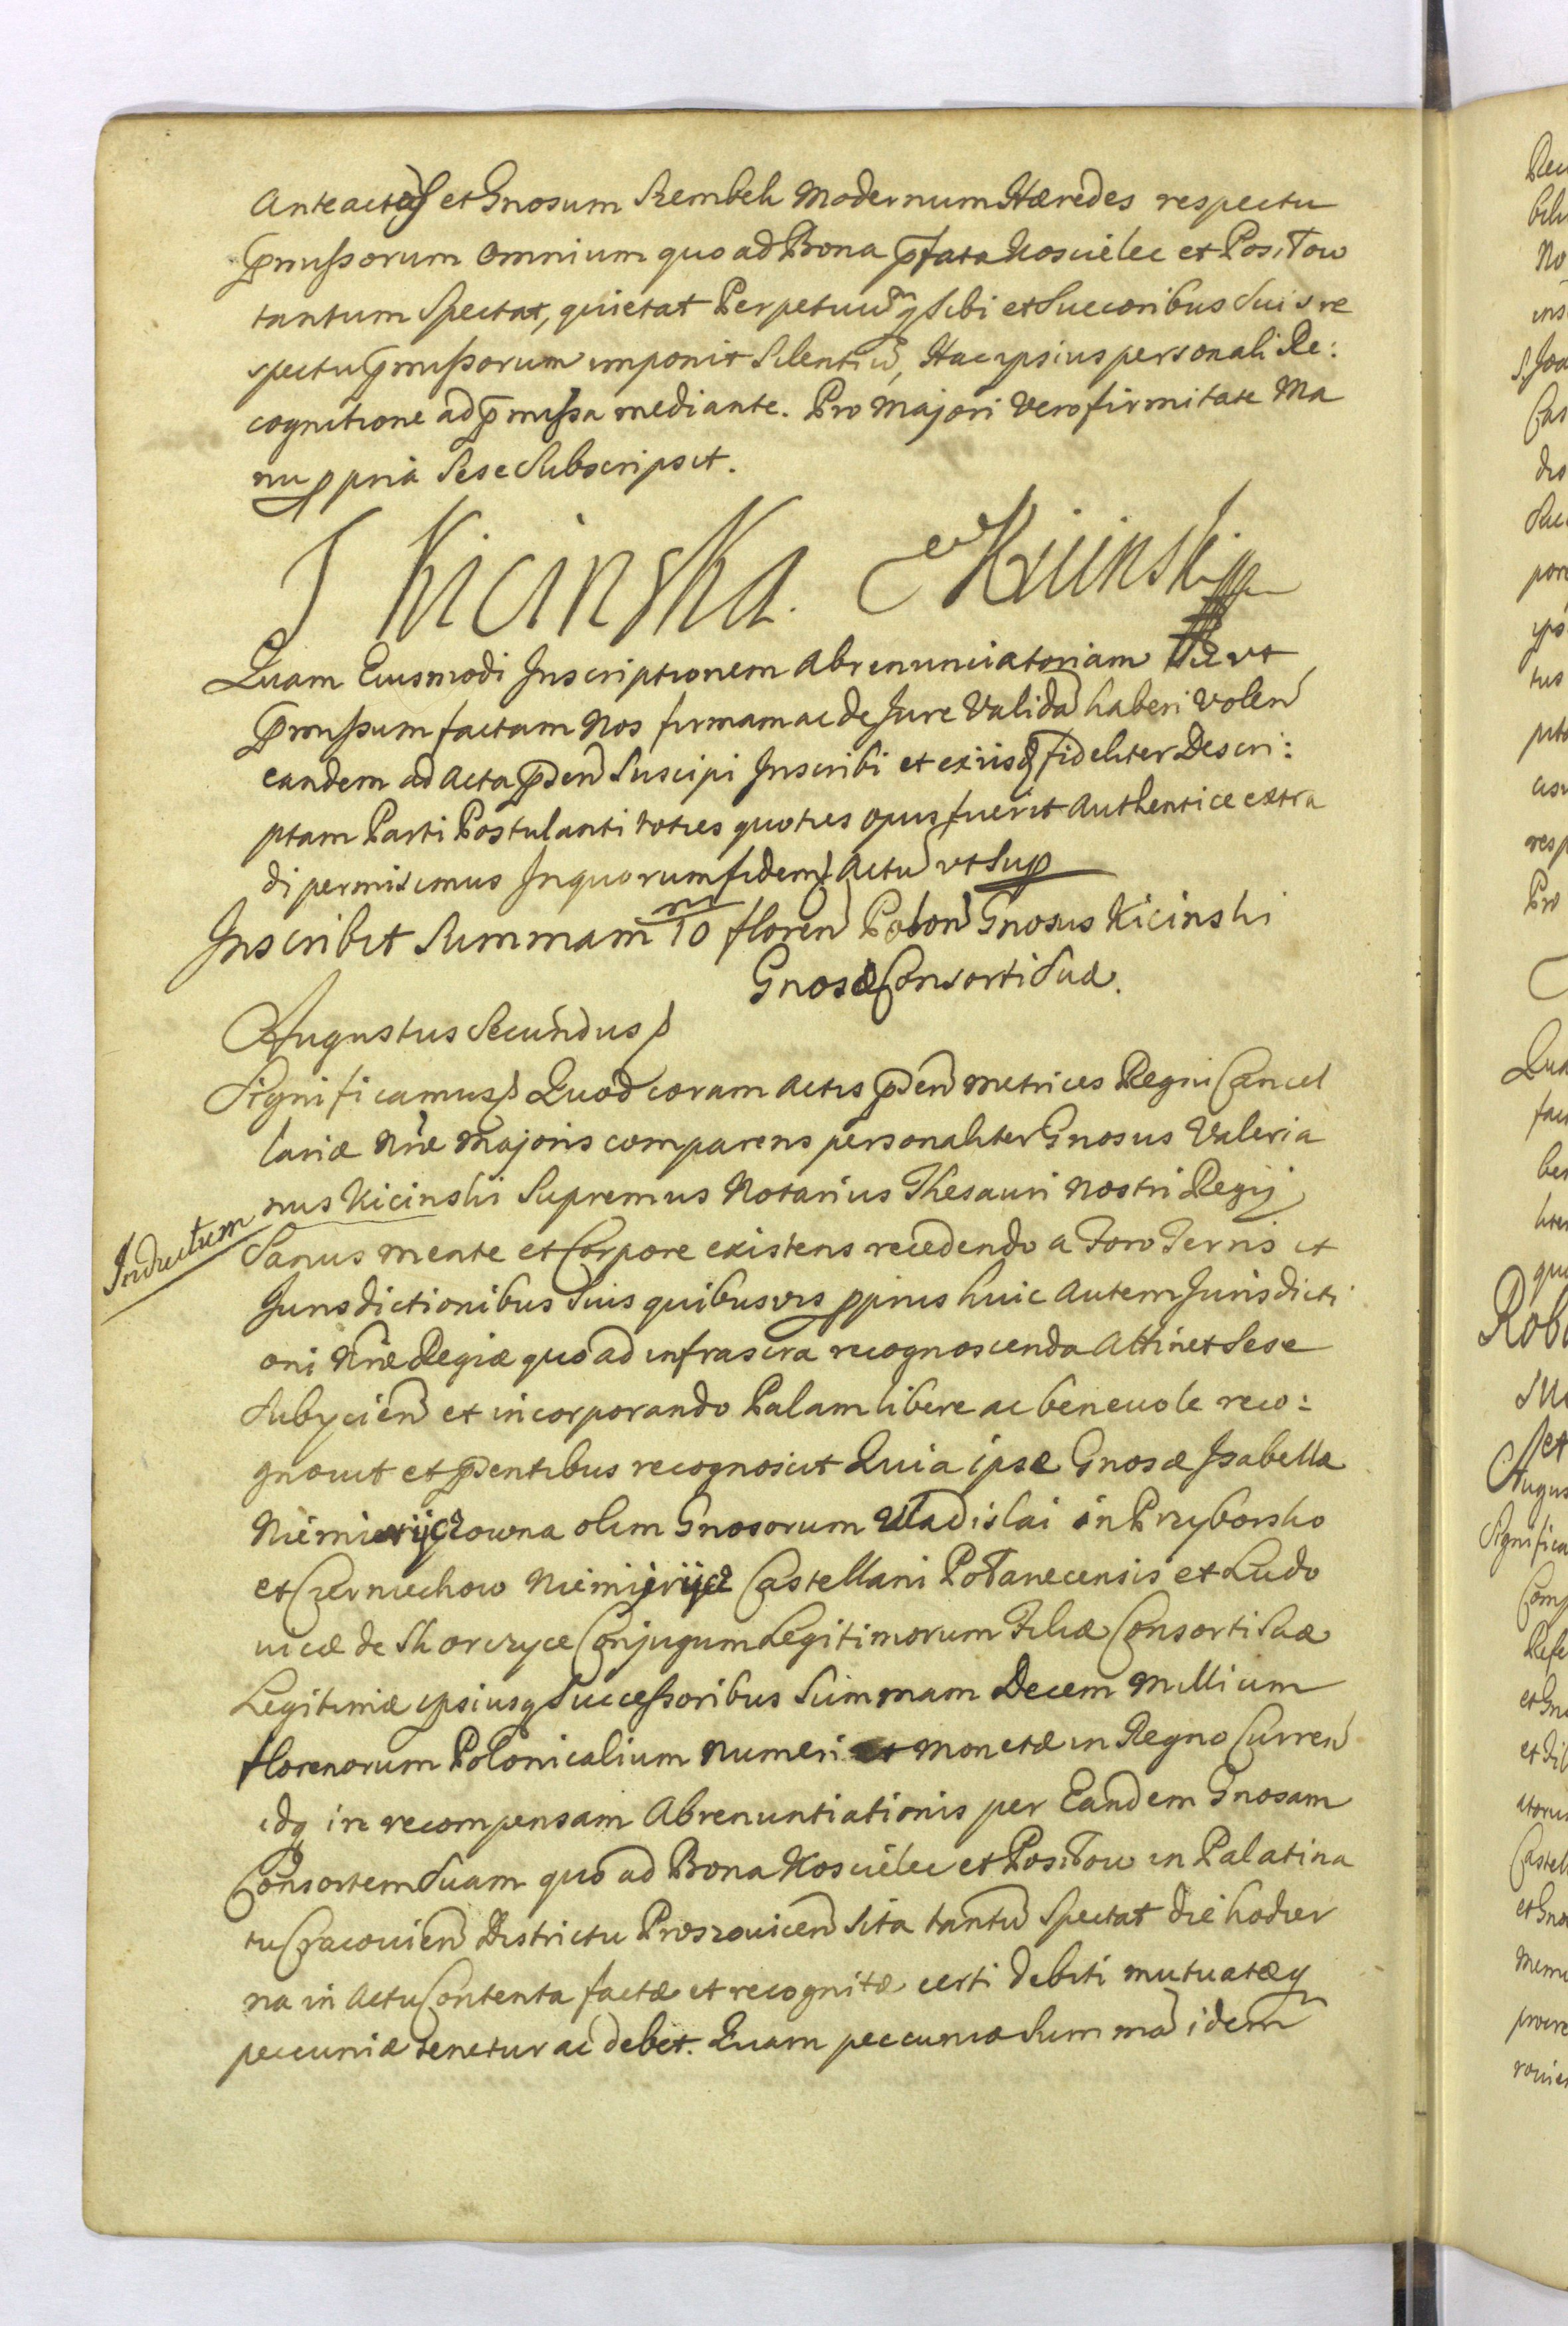 Anteactos et Gnosum Szembek Modernum Hæredes respectu
p̄missorum omnium quo ad Bona p̄fata Kościelec et Posiłow
tantum Spectat, quietat Perpetuũq Sibi et Succoribus Suis re
spectu p̄missorum imponit Silentiũ, Hac ipsius personali Re:
cognitione ad p̄missa mediante. Pro Majori vero firmitate Ma
nu ppria Sese Subscripsit.
J Kicinska. Kicinski
Quam Eiusmodi Inscriptionem Abrenunciatoriam ut
p̄missum factam Nos firmam ac de Jure Validã haberi Volen̄
eandem ad Acta p̄sen̄ Suscipi Inscribi et ex iisd̄ fideliter Descri:
ptam Parti Postulanti toties quoties opus fuerit Authentice extra
di permisimus In quorum fidem Actũ vt Sup
Inscribit Summam 10 m floren̄ Polon̄ Gnosus Kicinski
Gnosæ Consorti Suæ.
Augustus Secundus
Significamus Quod coram Actis p̄sen̄ Metrices Regni Cancel
lariæ Nr̄æ Majoris comparens personaliter Gnosus Valeria
nus Kicinski Supremus Notarius Thesauri Nostri Regij
Inductum
Sanus mente et Corpore existens recedendo a Foro Terris et
Jurisdictionibus Suis quibusvis pprius huic autem Jurisdicti
oni Nr̄æ Regiæ quo ad infrascra recognoscenda Attinet Sese
Subycien̄ et incorporando Palam libere ac beneuole reco:
gnouit et p̄sentibus recognoscit Quia ipsæ Gnosæ Isabellæ
Niemieryczowna olim Gnosorum Uladislai in Przyborsko
et Czerniechow Niemierycz Castellani Połanecensis et Ludo
uicæ de Skorczyce Conjugum Legitimorum Filiæ Consorti Suæ
Legitimæ ipsiusq Successoribus Summam Decem Millium
florenorum Polonicalium Numeri et Monetæ in Regno Curren̄
idq in recompensam Abrenuntiationis per Eandem Gnosam
Consortem Suam quo ad Bona Kościelec et Posiłow in Palatina
tu Cracouien̄ Districtu Proszouicen̄ Sita tantũ Spectat die hodier
na in Actu Contenta factæ et recognitæ certi debiti mutuatæq
pecuniæ tenetur ac debet. Quam peccuniæ Summã idem